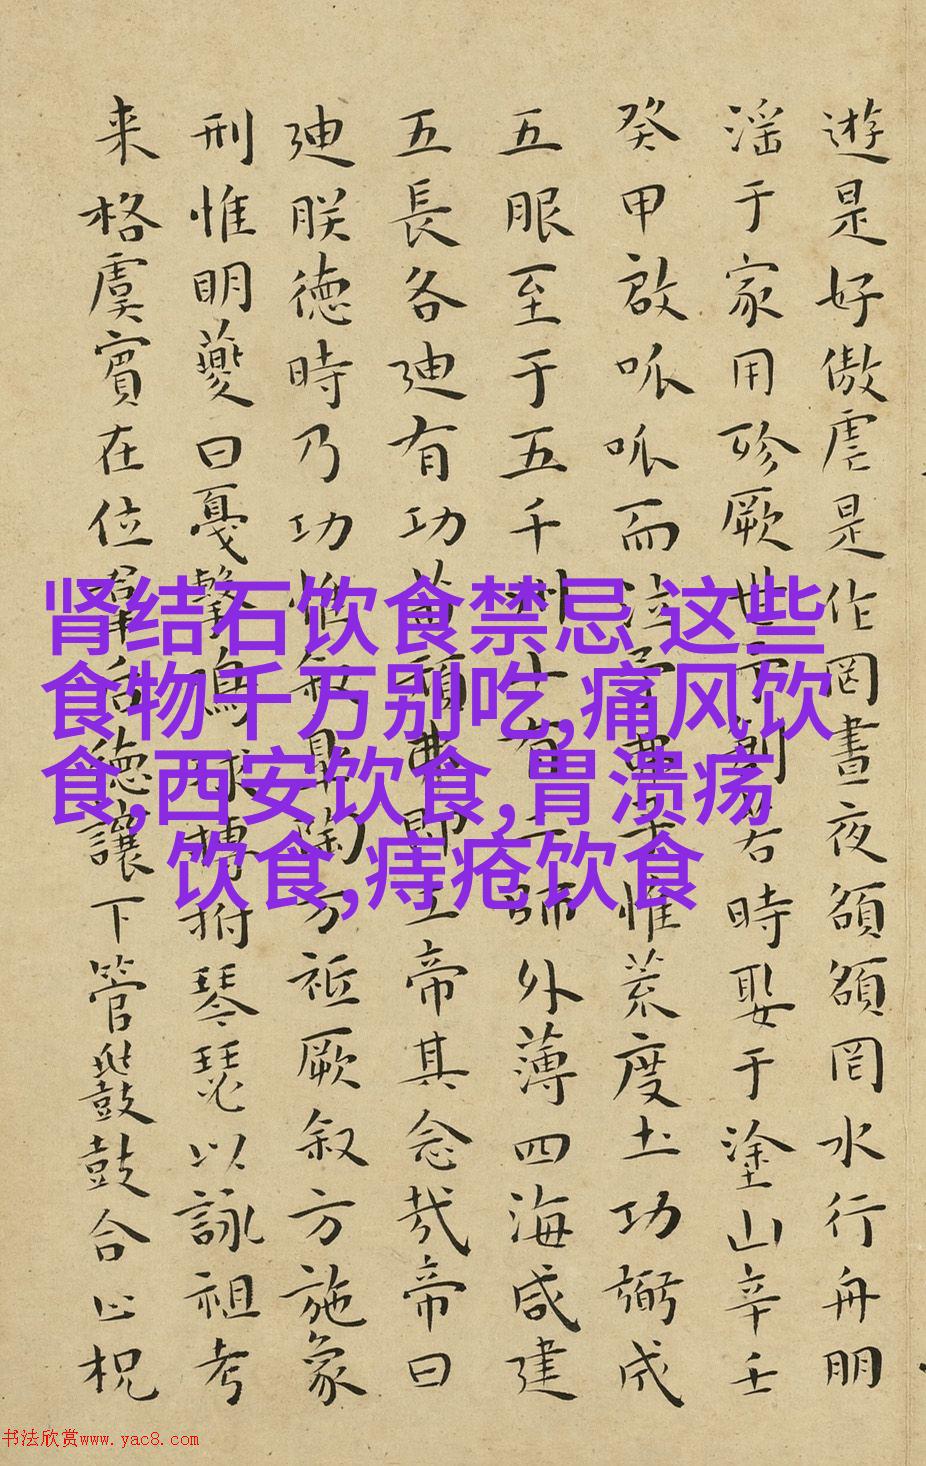 遊是好傲虐是作罔晝夜頟頟罔水行舟朋
淫于家用殄厥世予創若時娶于塗山辛壬
癸甲啟呱呱而泣予弗子惟荒度土功弼成
五服至于五千州十有二師外薄四海咸建
五長各迪有功苗頑弗即工帝其念哉帝曰
迪朕德時乃功惟叙皋陶方祗厥叙方施象
刑惟明夔曰戛擊鳴球搏拊琴瑟以詠祖考
来格虞賓在位羣后德讓下管鼗鼓合止柷
肾结石饮食禁忌 这些
食物千万别吃,痛风饮
食,西安饮食,胃溃疡
饮食,痔疮饮食
书法欣赏www.yac8.com